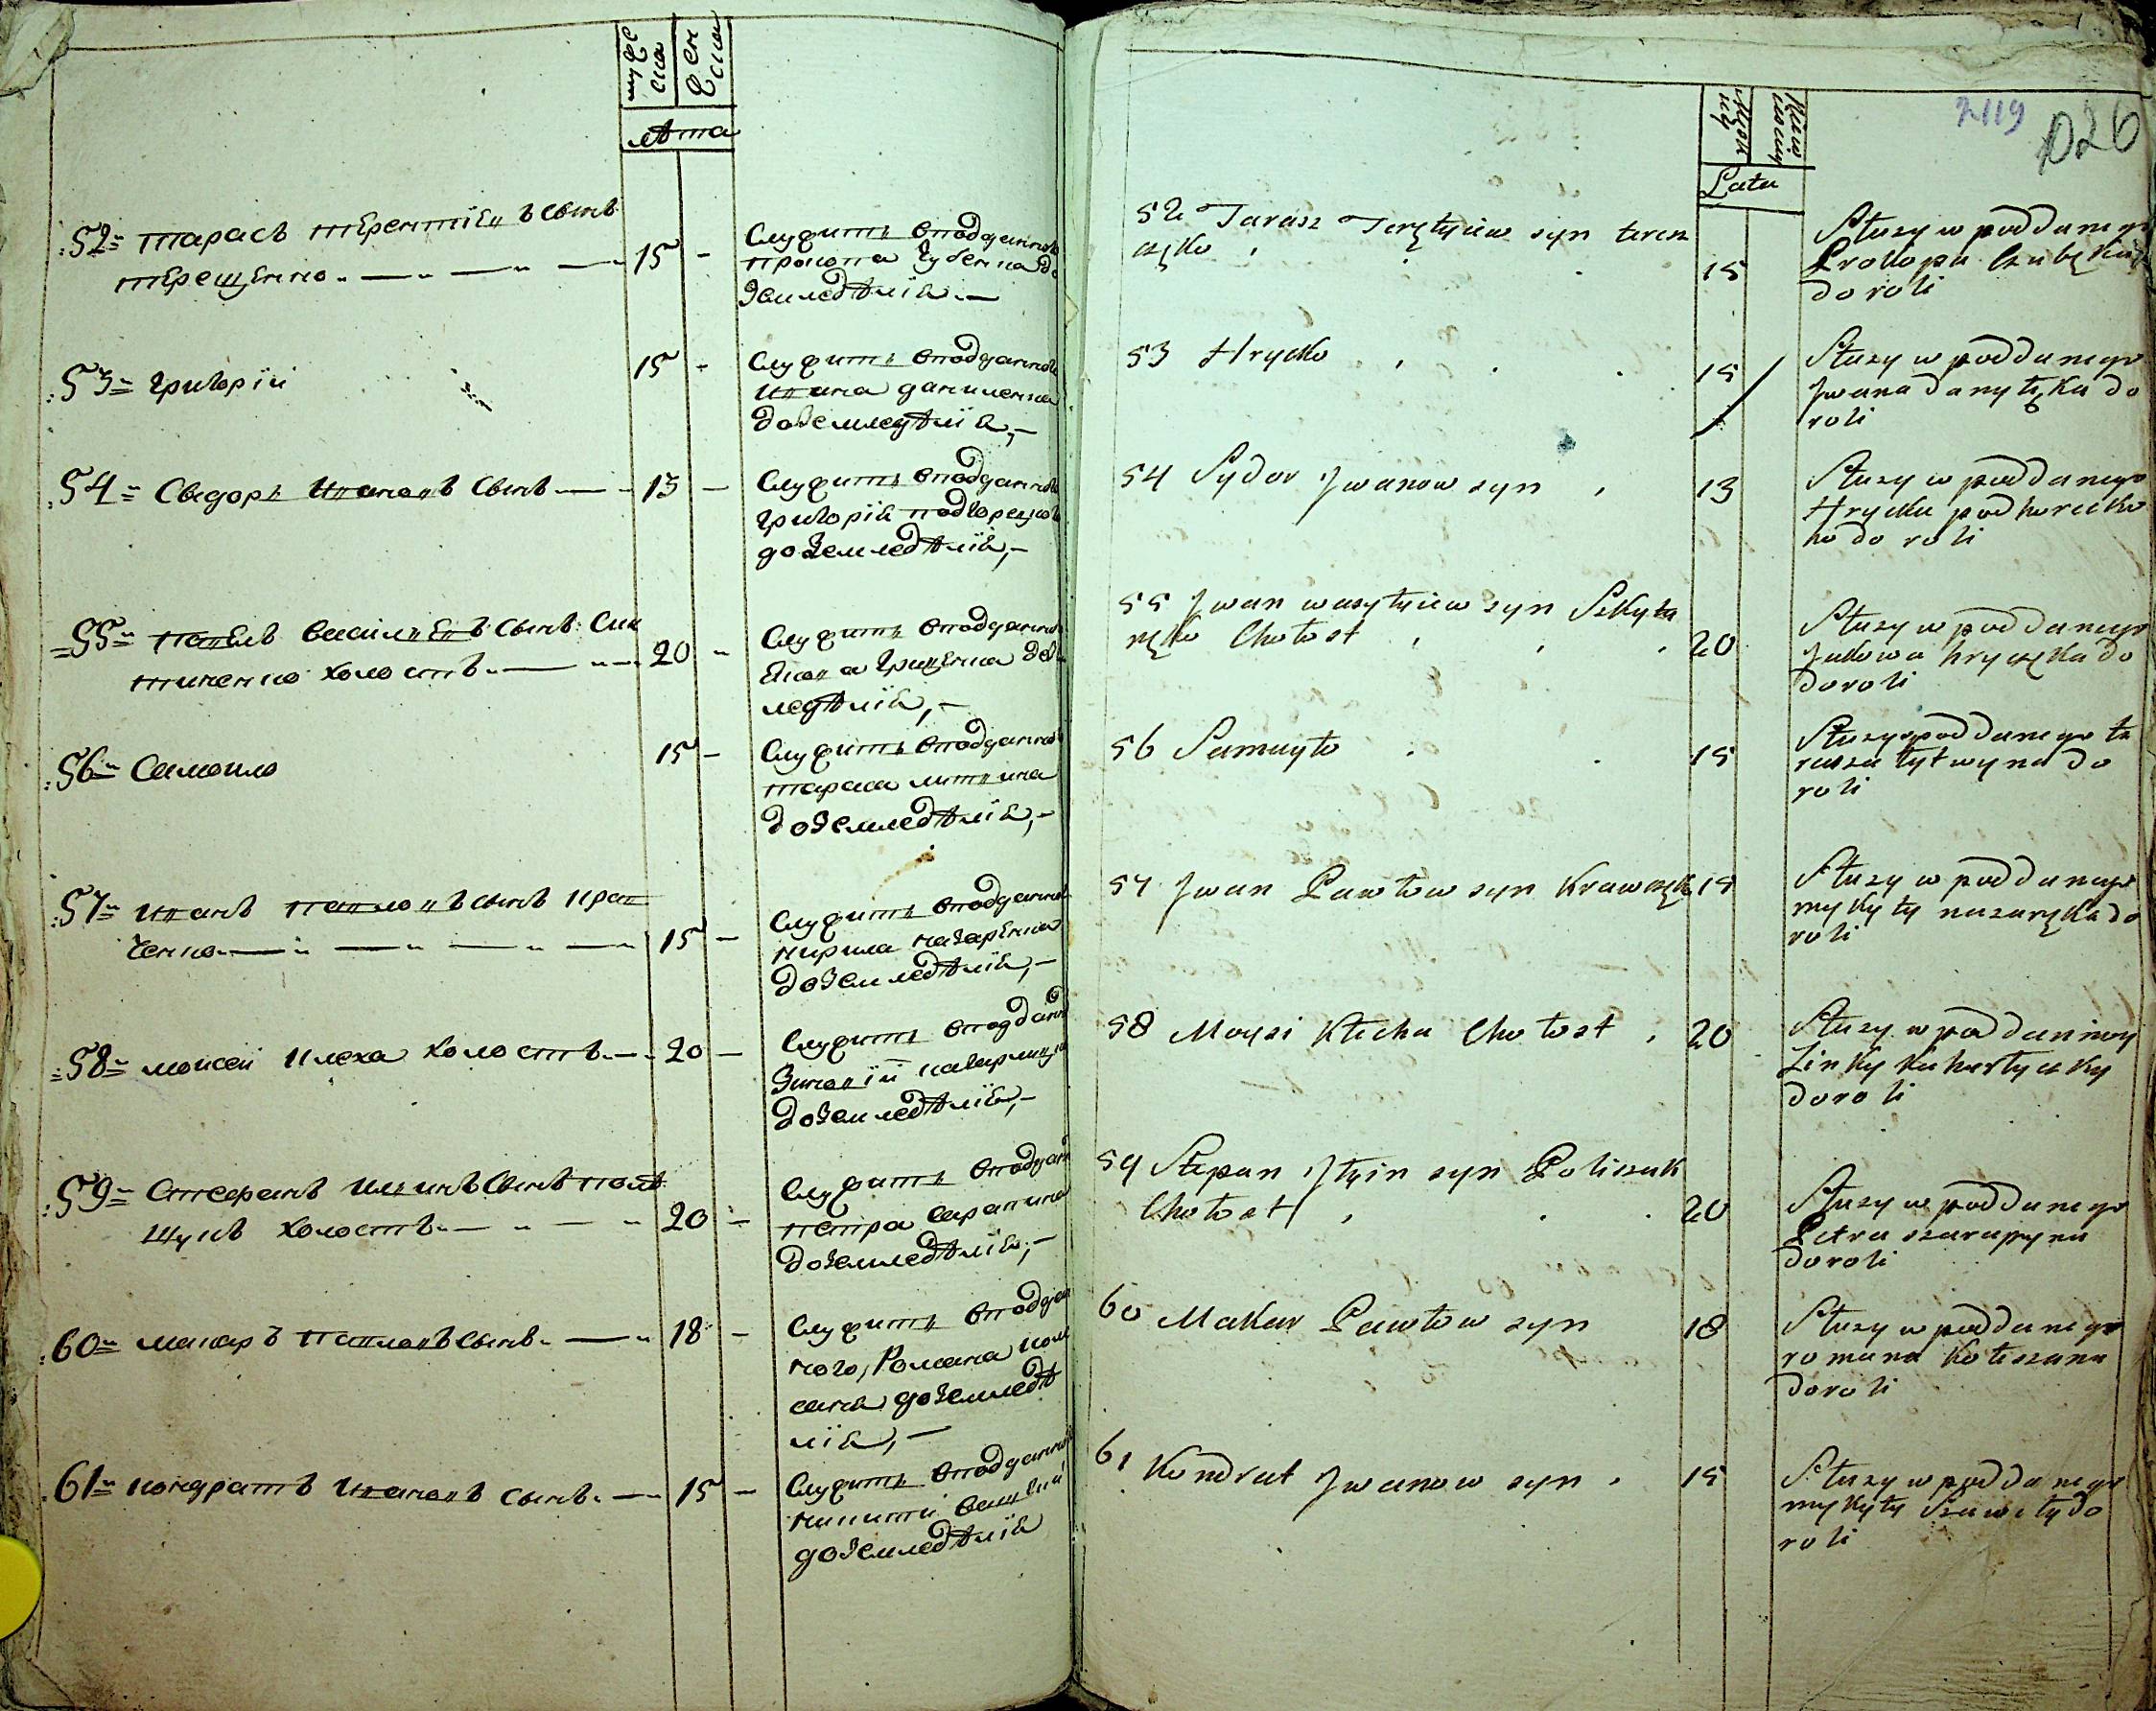 муже
ска
жен
ска
лѣта
52 Тарасъ Терентіевъ сынъ
Терещенко
15
Служитъ вподданного
Прокопа Чубенка до
Земледѣлія
53 Григорій
15
Служитъ вподданного
Ивана Даниленка
доЗемледѣлія
54 Сидоръ Ивановъ сынъ
13
Служитъ вподданного
Григорія Подгорецкого
доЗемледѣлія
55 Васильевъ сынъ
холостъ
20
Служитъ вподданного
Якова Гриценка доЗем
ледѣлія
56 Самойло
15
Служитъ вподданного
Тараса Литвина
доЗемледѣлія
57 Иванъ Павловъ сынъ Крав
ченко
15
Служитъ вподданного
назаренка
доЗемледѣлія
58 Моисей Клеха холостъ
20
Служитъ вподдан
доЗемледѣлія
59 Стефанъ Ильинъ сынъ Полѣ
щукъ холостъ
20
Служитъ вподдан
Петра Шарапина
доЗемледѣлія
60 Макаръ Павловъ сынъ
18
Служитъ вподдан
ного Романа Коле
сана доЗемледѣ
лія
61 Кондратъ Ивановъ сынъ
15
Служитъ вподданного
Никити
доЗемледѣлія
2119
026
Lata
52 Tarasz Terętyiew syn teresz
częko
15
Służy w poddanego
Prokopa Czubęka
do roli
53 Hrycko
15
Służy w poddanego
Jwana danyłęka do
roli
54 Sydor Jwanow syn
13
Służy w poddanego
Hrycka podhorecko
ho do roli
55 Jwan wasyłyiew syn Szkyta
nęko Chołost
20
Służy w poddanego
Jakowa hrycęka do
doroli
56 Samuyło
15
Służy w poddanego ta
rasza łytwyna do
roli
57 Jwan Pawłow syn Krawczęk
15
Służy w poddanego
mykyty nazaręka do
roli
58 Moysi Klecha Chołost
20
Służy w poddaniey
Zinky
doroli
59 Stepan Jłyin syn Poliszuk
Chołost
20
Służy w poddanego
Petra szarapyna
doroli
60 Makar Pawłow syn
18
Służy w poddanego
romana Koleszana
doroli
61 Kondrat Jwanow syn
15
Służy w poddanego
mykyty Szawiły do
roli